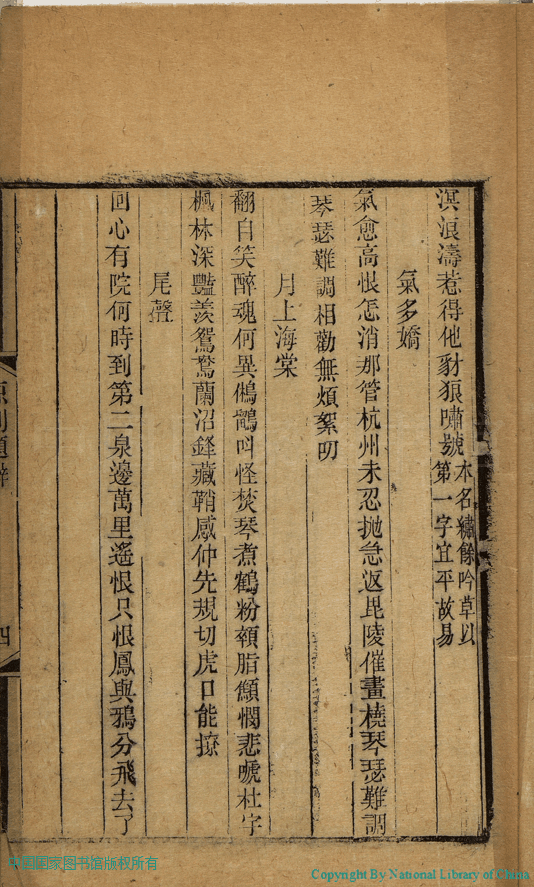 溟浪濤惹得他豺狼嘯號本名繡餘吟草以
第一字宜平故易
氣多嬌
氣愈高恨怎消那管杭州未忍拋急返毘陵催畫橈琴瑟難調
琴瑟難調相勸無煩絮叨
月上海棠
翻自笑醉魂何異鵂鶹叫怪焚琴煮鶴粉頷脂顦憫悲號杜宇
楓林深豔羨鴛鴦蘭沼鋒藏鞘感仲先規切虎口能撩
尾聲
回心有院何時到第二泉邊萬里遙恨只恨鳳與鴉分飛去了
原
題辭
四
中国国家图书馆版权所有
Copyright By National Library of China